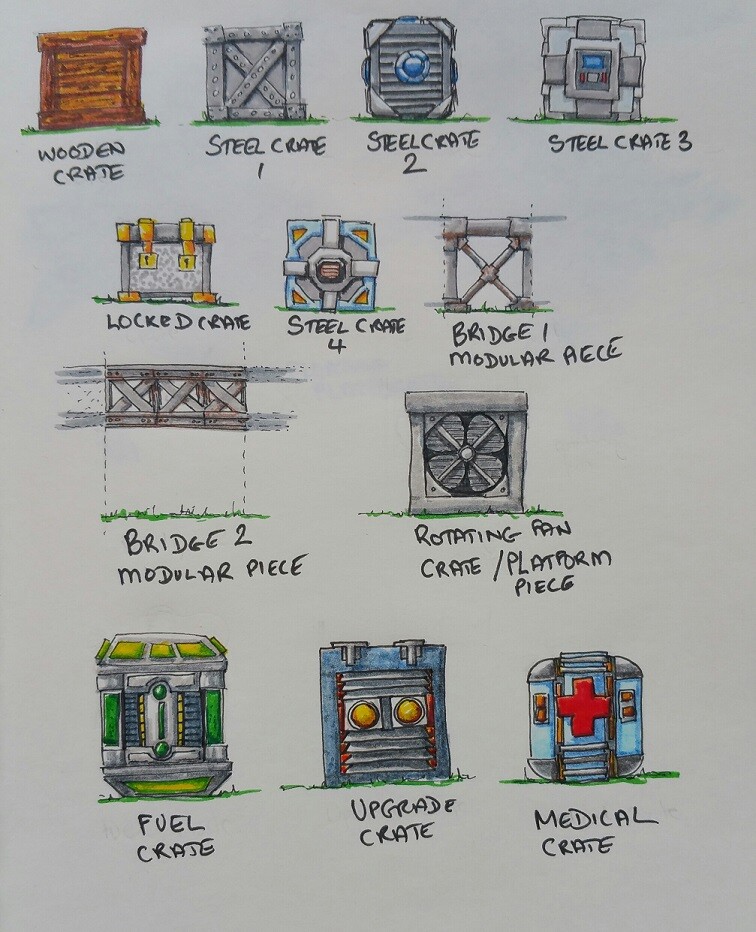 WOODEN
CRATE
STEEL CRATE
1
STEEL CRATE
2
STEEL CRATE 3
LOCKED CRATE
STEEL CRATE
4
BRIDGE 1
MODULAR PIECE
BRIDGE 2
MODULAR PIECE
ROTATING FAN
CRATE / PLATFORM
PIECE
FUEL
CRATE
UPGRADE
CRATE
MEDICAL
CRATE